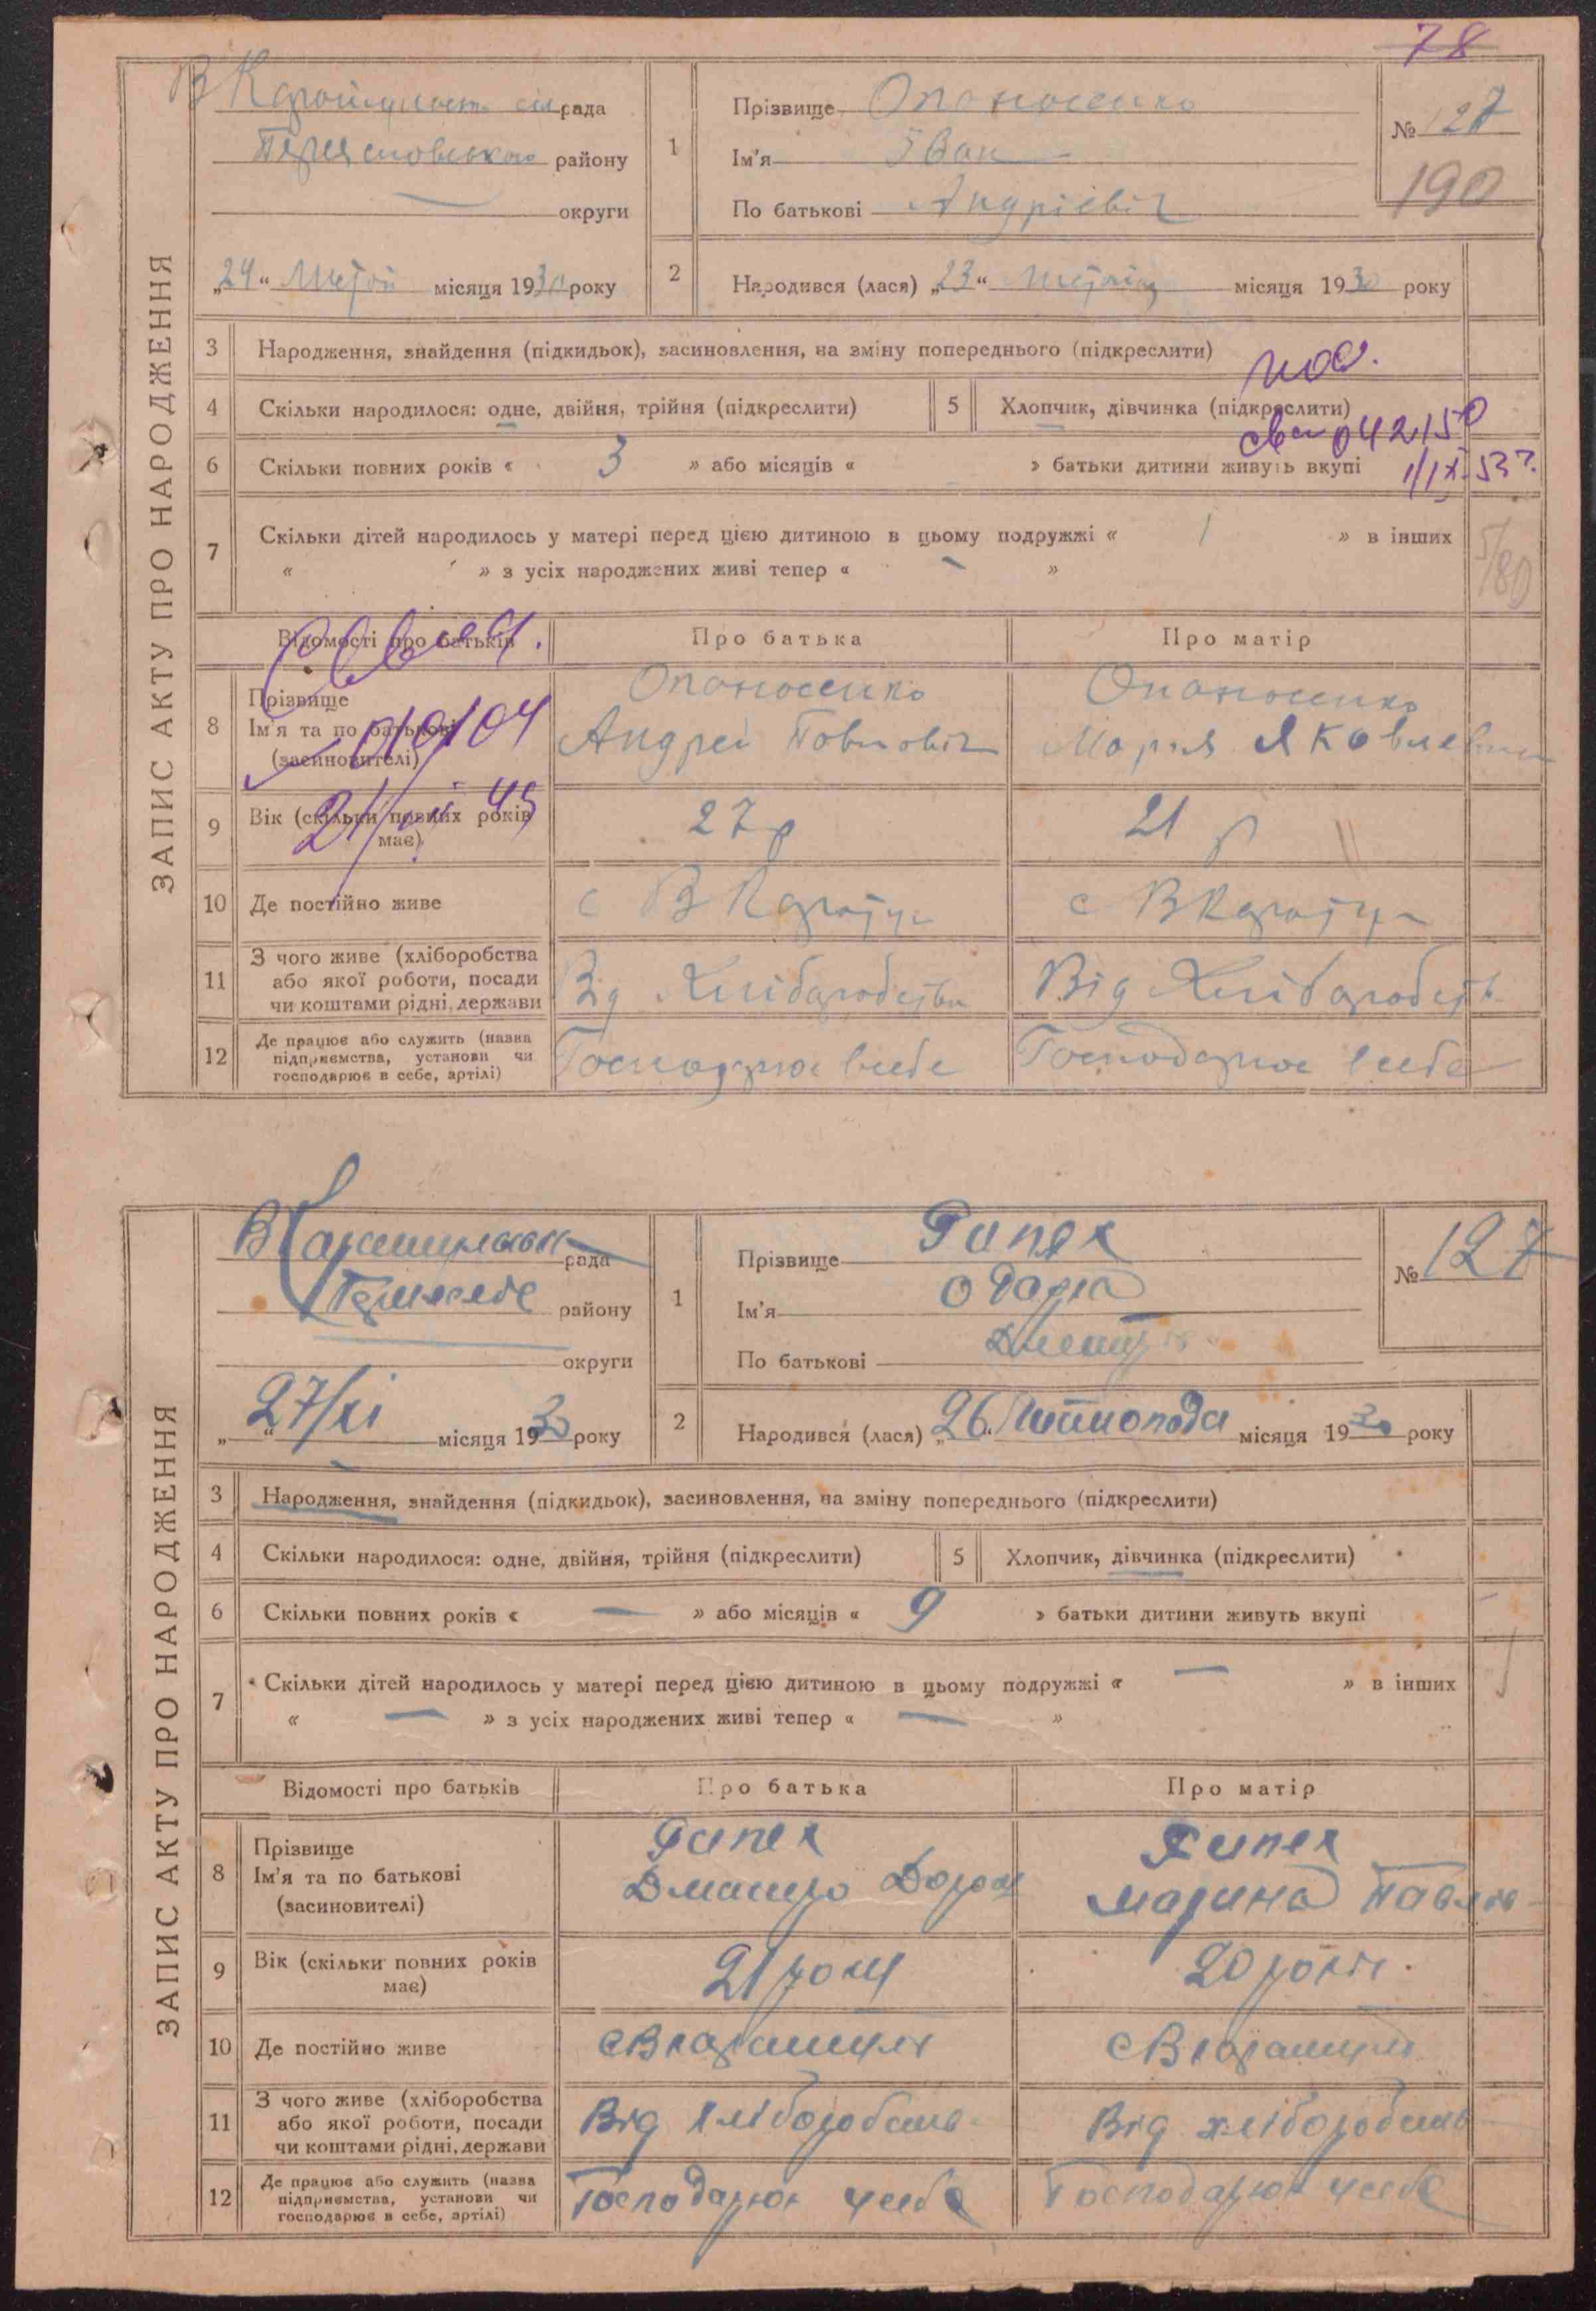 78
ЗАПИС АКТУ ПРО НАРОДЖЕННЯ
рада
району
округи
„24“ місяця 1930 року
1 Прізвище Опанасенко
Ім'я Іван
По батькові Андрієвіч
№ 127
190
2 Народився (лася) „23“ місяця 1930 року
3 Народження, знайдення (підкидьок), засиновлення, на зміну попереднього (підкреслити)
4 Скільки народилося: одне, двійня, трійня (підкреслити)
5 Хлопчик, дівчинка (підкреслити)
042150
6 Скільки повних років « 3 » або місяців « » батьки дитини живуть вкупі
7 Скільки дітей народилось у матері перед цією дитиною в цьому подружжі « 1 » в інших
« » з усіх народжених живі тепер « »
Відомості про батьків Про батька Про матір
8 Прізвище
Ім'я та по батькові
(засиновителі)
Опоносенко
Андрей Повловіч
Опоносенко
Мория Яковлевна
9 Вік (скільки повних років має)
27 р
21 р
10 Де постійно живе
11 З чого живе (хліборобства
або якої роботи, посади
чи коштами рідні, держави
Від Хліборобства
Від Хліборобств
12 Де працює або служить (назва
підприємства, установи чи
господарює в себе, артілі)
Господарює в себе
Господарює в себе
ЗАПИС АКТУ ПРО НАРОДЖЕННЯ
рада
району
округи
„27/XI“ місяця 1930 року
1 Прізвище
Ім'я Одарка
По батькові
№ 127
2 Народився (лася) „26“ листопада місяця 1930 року
3 Народження, знайдення (підкидьок), засиновлення, на зміну попереднього (підкреслити)
4 Скільки народилося: одне, двійня, трійня (підкреслити)
5 Хлопчик, дівчинка (підкреслити)
6 Скільки повних років « — » або місяців « 9 » батьки дитини живуть вкупі
7 Скільки дітей народилось у матері перед цією дитиною в цьому подружжі « — » в інших
« — » з усіх народжених живі тепер « — »
Відомості про батьків Про батька Про матір
8 Прізвище
Ім'я та по батькові
(засиновителі)
Дмитро
Марина Павлов
9 Вік (скільки повних років має)
21 роки
20 років
10 Де постійно живе
11 З чого живе (хліборобства
або якої роботи, посади
чи коштами рідні, держави
Від хліборобства
Від хліборобств
12 Де працює або служить (назва
підприємства, установи чи
господарює в себе, артілі)
Господарює у себе
Господарює у себе